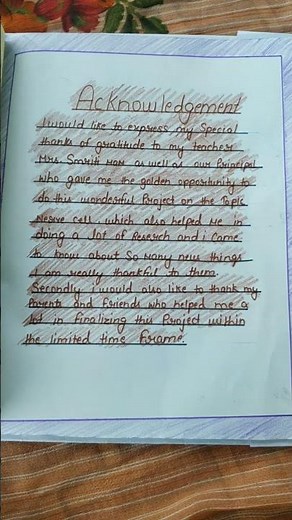 Acknowledgement
I would like to express my special
thanks of gratitude to my teacher
Mrs. Smriti Mam as well as our Principal
who gave me the golden opportunity to
do this wonderful Project on the Topic
Nerve cell, which also helped me in
doing a lot of Reserch and i came
to know about so many new things
I am really thankful to them.
Secondly i would also like to thank my
Parents and friends who helped me a
lot in finalizing this Project within
the limited time frame.